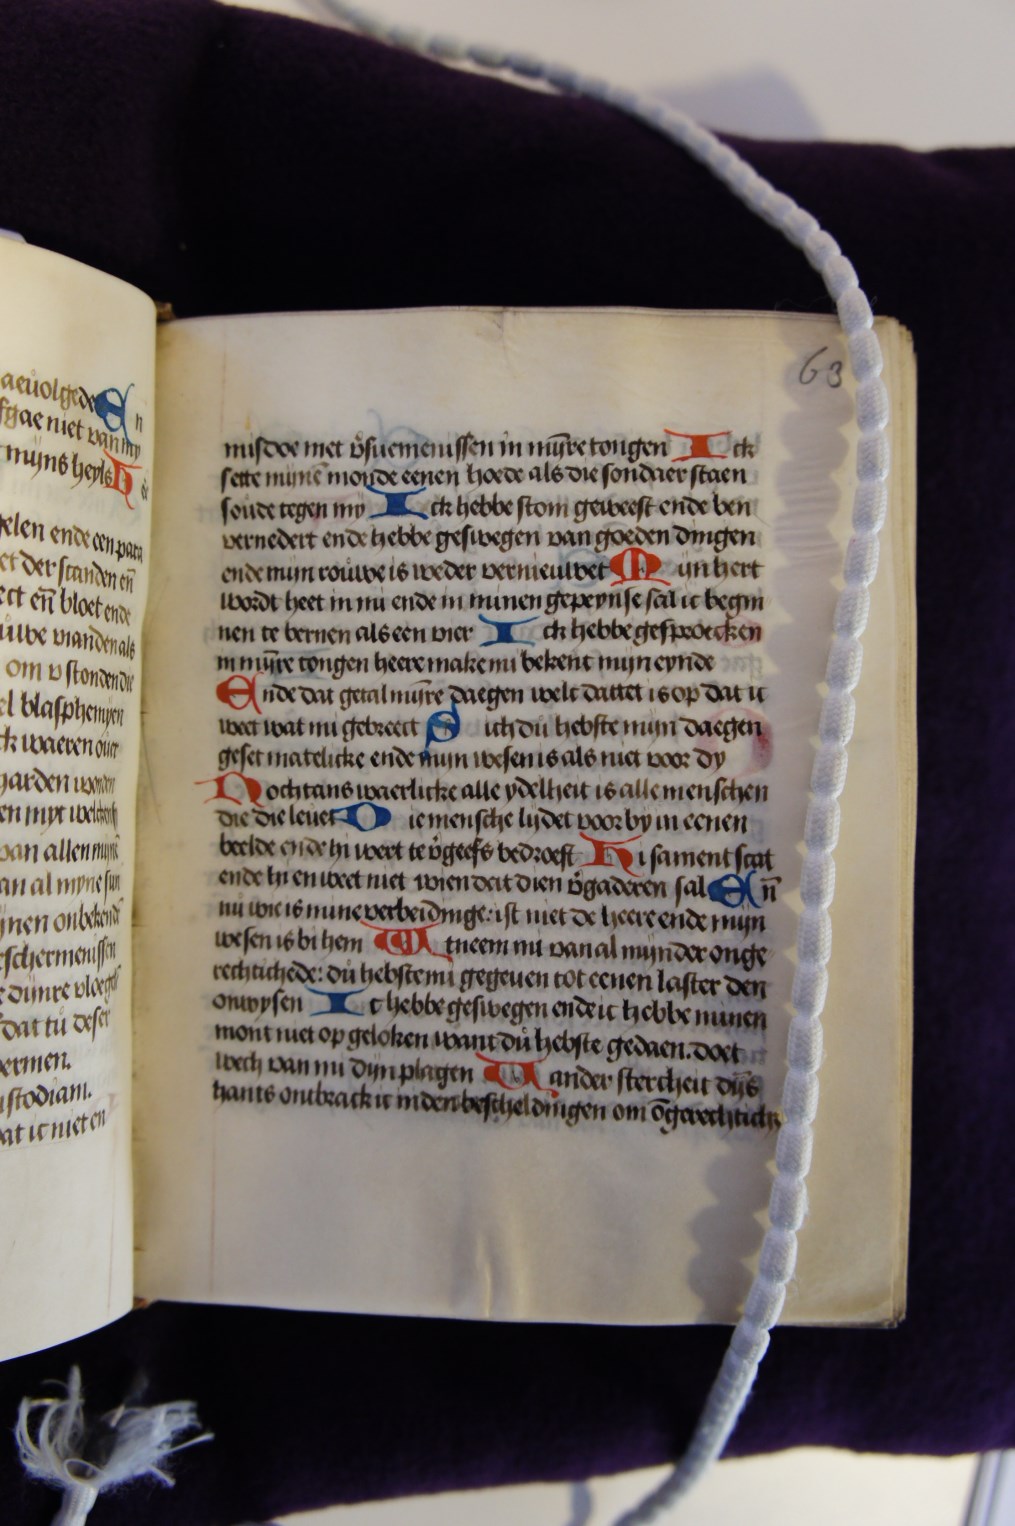 aeuolgede En
gae niet van my
mijns heyls He
gelen ende een para
et der standen eñ
ect eñ bloet ende
uwe vianden als
om v stonden die
el blasphemyen
ck waeren ouer
garden worden
van allen mijne
an al myne sun
ynen onbekende
eschermenissen
e dijnre vloegel
dat tu deser
ermen.
ustodiam.
at ic niet en
63
misdoe met v̊suemenissen in mijn̄re tongen Ick
sette mijnē monde eenen hoede als die sondaer staen
soude tegen my Ick hebbe stom geweest ende ben
vernedert ende hebbe geswegen van goeden dingen
ende mijn rouwe is weder vernieuwet Mijn hert
wordt heet in mi ende in minen gepeynse sal ic begin
nen te bernen als een vier Ick hebbe gesproecken
in mijn̄re tongen heere make mi bekent mijn eynde
Ende dat getal mijn̄re daegen welc dattet is op dat ic
weet wat mi gebreect Sich du hebste mijn daegen
geset matelicke ende mijn wesen is als niet voor dy
Nochtans waerlicke alle ydelheit is alle menschen
die die leuet Die mensche lijdet voorby in eenen
beelde ende hi weet te v̊geefs bedroeft Hi sament scat
ende hi en weet niet wien dat dien v̊gaderen sal Eñ
nu wie is mine verbeidinge: ist niet de heere ende mijn
wesen is bi hem Utneem mi van al mijnder onge
rechtichede: du hebste mi gegeuen tot eenen laster den
onwysen Ic hebbe geswegen ende ic hebbe minen
mont niet op geloken want du hebste gedaen. doet
wech van mi dijn plagen Vander stercheit dijs
hants ontbrack ic in den bescheldingen om ōgerechtich